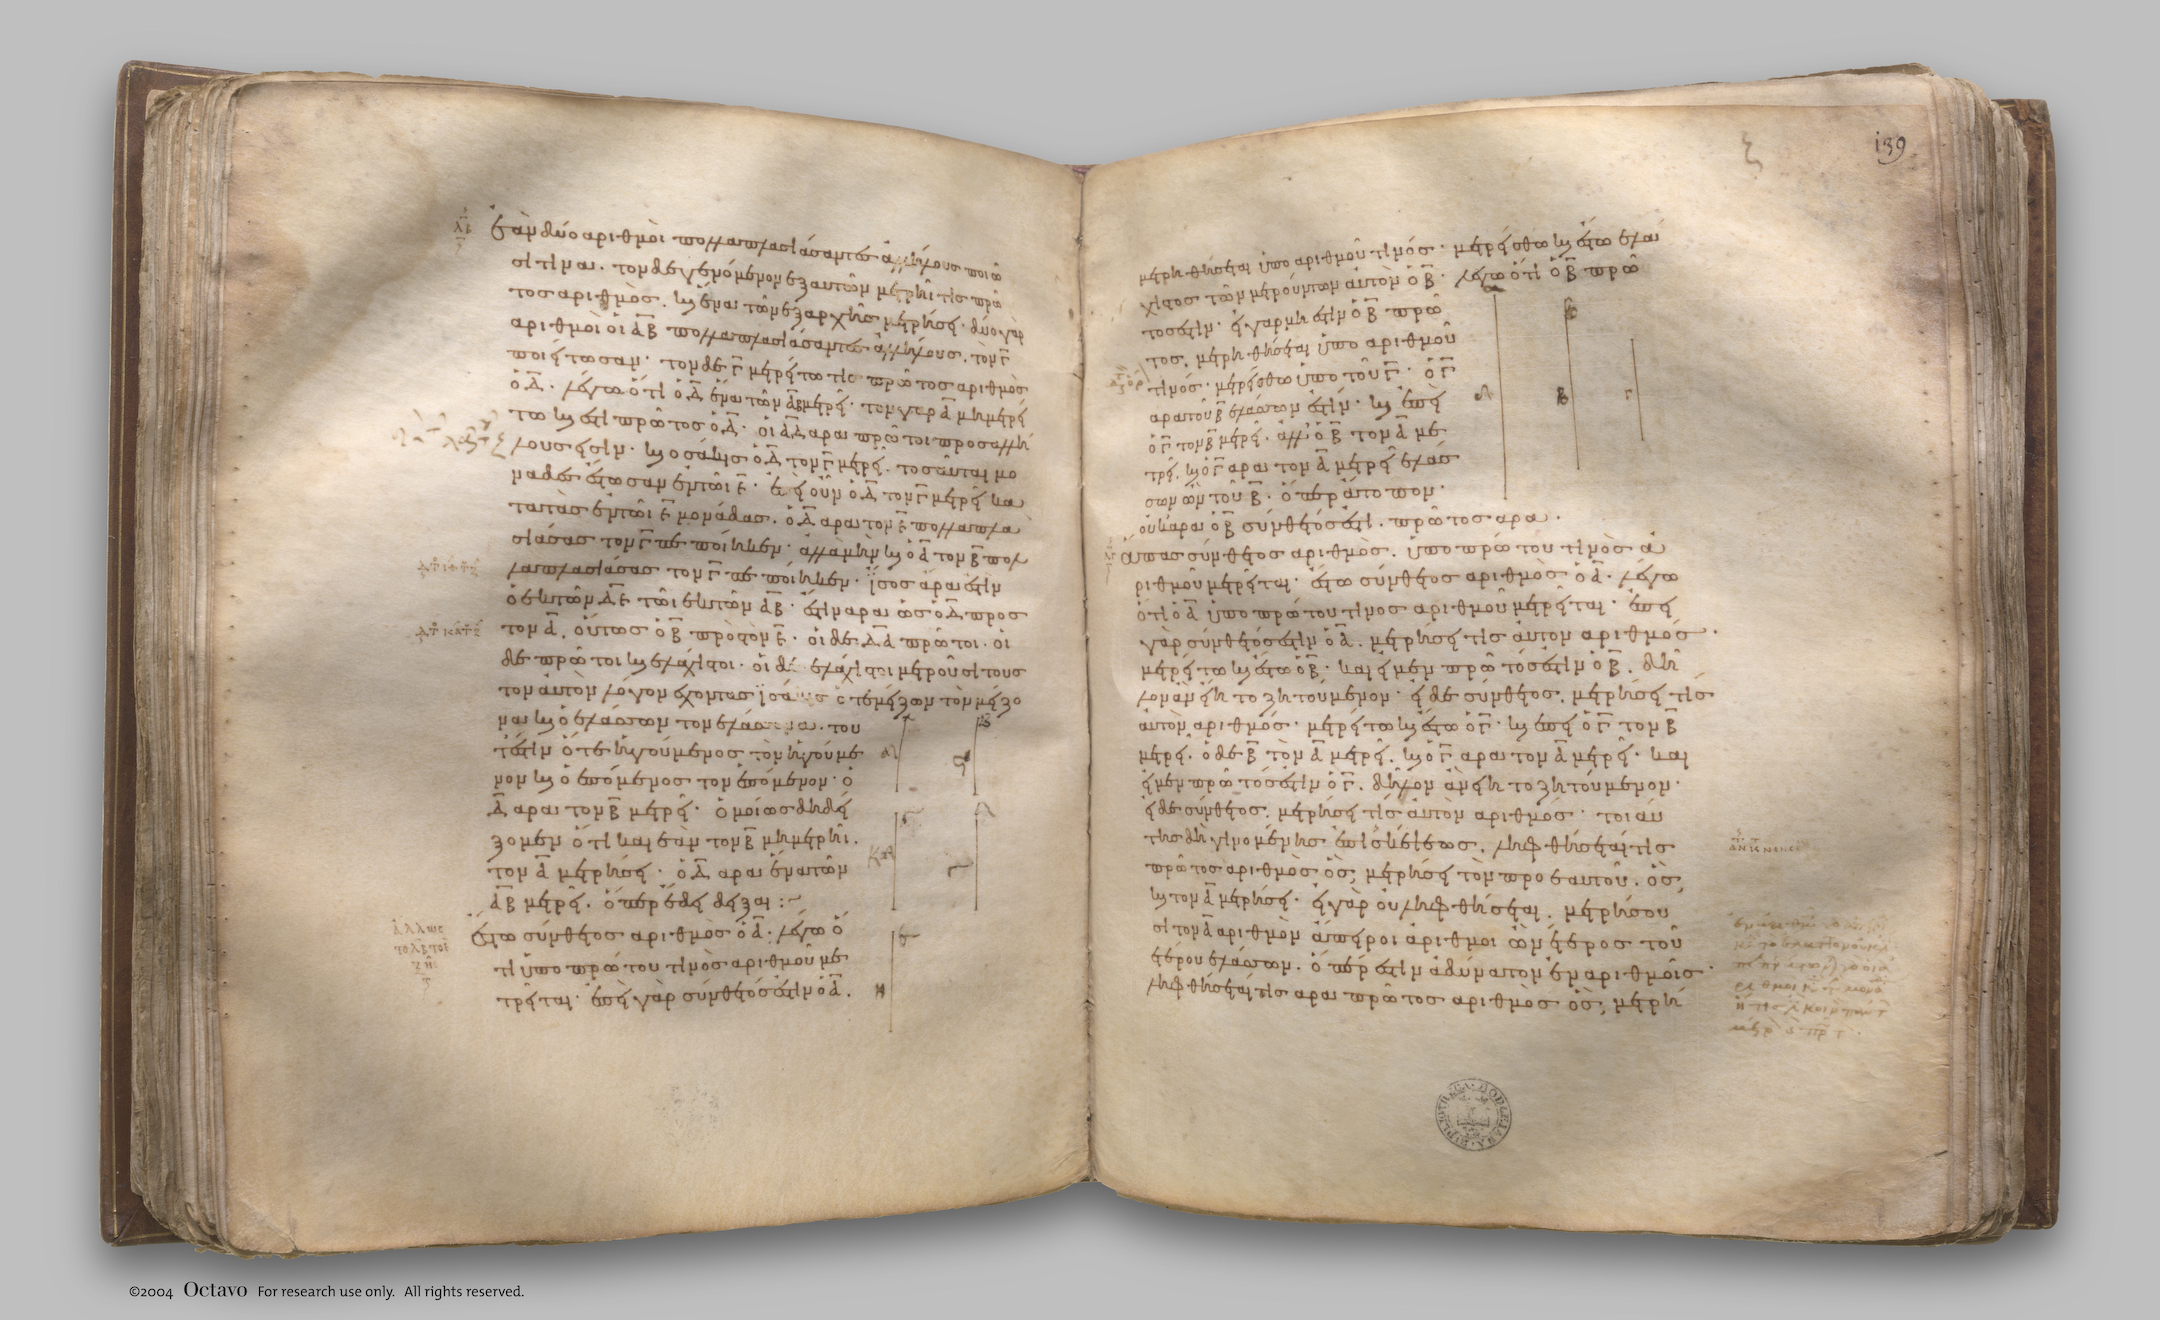 ἐὰν δύο ἀριθμοὶ πολλαπλασιάσαντες ἀλλήλους ποιῶ
σί τινα. τὸν δὲ γενόμενον ἐξ αὐτῶν μετρῆι τίς πρῶ
τος ἀριθμὸς. καὶ ἕνα τῶν ἐξαρχῆς μετρήσει. δύο γὰρ
ἀριθμοὶ οἱ Α Β πολλαπλασιάσαντες ἀλλήλους. τὸν Γ
ποιείτωσαν. τὸν δὲ Γ μετρείτω τὶς πρῶτος ἀριθμὸς
ὁ Δ. λέγω ὅτι ὁ Δ ἕνα τῶν ΑΒ μετρεῖ. τὸν γὰρ Α μὴ μετρεί
τω καὶ ἔστι πρῶτος ὁ Δ. οἱ Α Δ ἄρα πρῶτοι προς ἀλλή
λους εἰσίν. καὶ ὁσάκις ὁ Δ τὸν Γ μετρεῖ. τοσαῦται μο
νάδες ἔστωσαν ἐν τῶι Ε. ἐπεὶ οὖν ὁ Δ τὸν Γ μετρεῖ κα
τα τὰς ἐν τῶι Ε μονάδας. ὁ Δ ἄρα τὸν Ε πολλαπλα
σιάσας τὸν Γ πεποίηκεν. ἀλλὰ μὴν καὶ ὁ Α τὸν Β πολ
λαπλασιάσας τὸν Γ πεποίηκεν. ἴσος ἄρα ἐστὶν
ὁ ἐκ τῶν ΔΕ τῶι ἐκ τῶν ΑΒ. ἔστιν ἄρα ὡς ὁ Δ προς
τον Α. οὕτως ὁ Β πρὸς τὸν Ε. οἱ δὲ Δ Α πρῶτοι. οἱ
δὲ πρῶτοι καὶ ἐλάχιστοι. οἱ δὲ ἐλάχιστοι μετροῦσι τους
τον αὐτὸν λόγον ἔχοντας ἰσάκις ὅ τε μείζων τὸν μείζο
να καὶ ὁ ἐλάσσων τον ἐλάσσονα. του
τέστιν ὅ τε ἡγούμενος τὸν ἡγούμε
νον καὶ ὁ ἑπόμενος τον ἑπόμενον. ὁ
Δ ἄρα τὸν Β μετρεῖ. ὁμοίως δὴ δεί
ξομεν ὅτι καὶ ἐὰν τον Β μὴ μετρῆι.
τον Α μετρήσει. ὁ Δ ἄρα ἕνα τῶν
ΑΒ μετρεῖ. ὅπερ ἔδει δεῖξαι :~
ἔστω σύνθετος ἀριθμὸς ὁ Α. λέγω ὅ
τι ὑπο πρώτου τινὸς ἀριθμοῦ με
τρεῖται. ἐπεὶ γὰρ σύνθετός ἐστιν ὁ Α.
139
μετρηθήσεται ὑπο ἀριθμοῦ τινός. μετρείσθω καὶ ἔστω ἐλα
χιστος τῶν μετρούντων αὐτὸν ὁ Β. λέγω ὅτι ὁ Β πρῶ
τος ἐστίν. εἰ γαρ μη ἐστὶν ὁ Β πρῶ
τος. μετρηθήσεται ὑπο ἀριθμοῦ
τινός. μετρείσθω ὑπο τοῦ Γ. ὁ Γ
ἄρα τοῦ Β ἐλάσσων ἐστίν. καὶ ἐπεὶ
ὁ Γ τὸν Β μετρεῖ. ἀλλ' ὁ Β τὸν Α με
τρεῖ. καὶ ὁ Γ ἄρα τὸν Α μετρεῖ ἐλάσ
σων ὢν τοῦ Β. ὅπερ ἄτοπον.
οὐκ ἄρα ὁ Β σύνθετός ἐστι. πρῶτος ἄρα.
ἅπας σύνθετος ἀριθμὸς. ὑπο πρώτου τινὸς ἀ
ριθμοῦ μετρεῖται. ἔστω σύνθετος ἀριθμὸς ὁ Α. λέγω
ὅτι ὁ Α ὑπο πρώτου τινος ἀριθμοῦ μετρεῖται. ἐπεὶ
γὰρ σύνθετός ἐστιν ὁ Α. μετρήσει τὶς αὐτον ἀριθμός.
μετρείτω καὶ ἔστω ὁ Β. καὶ εἰ μὲν πρῶτός ἐστιν ὁ Β. δῆ
λον ἂν εἴη τὸ ζητούμενον. εἰ δὲ σύνθετος. μετρήσει τίς
αὐτὸν ἀριθμός. μετρείτω καὶ ἔστω ὁ Γ. καὶ ἐπεὶ ὁ Γ τον Β
μετρεῖ. ὁ δὲ Β τὸν Α μετρεῖ. καὶ ὁ Γ ἄρα τον Α μετρεῖ. καὶ
εἰ μὲν πρῶτός ἐστιν ὁ Γ. δῆλον ἂν εἴη το ζητούμενον.
εἰ δὲ σύνθετος. μετρήσει τίς αὐτὸν ἀριθμός. τοιαύ
της δὴ γινομένης ἐπισκέψεως. ληφθήσεται τις
πρῶτος ἀριθμὸς ὃς μετρήσει τὸν προ ἑαυτοῦ. ὃς
καὶ τον Α μετρήσει. εἰ γὰρ οὐ ληφθήσεται. μετρήσου
σι τον Α ἀριθμὸν ἄπειροι ἀριθμοι ὧν ἕτερος τοῦ
ἑτέρου ἐλάσσων. ὅπερ ἐστὶν ἀδύνατον ἐν ἀριθμοῖς.
ληφθήσεται τίς ἄρα πρῶτος ἀριθμὸς ὃς μετρή
©2004 Octavo For research use only. All rights reserved.